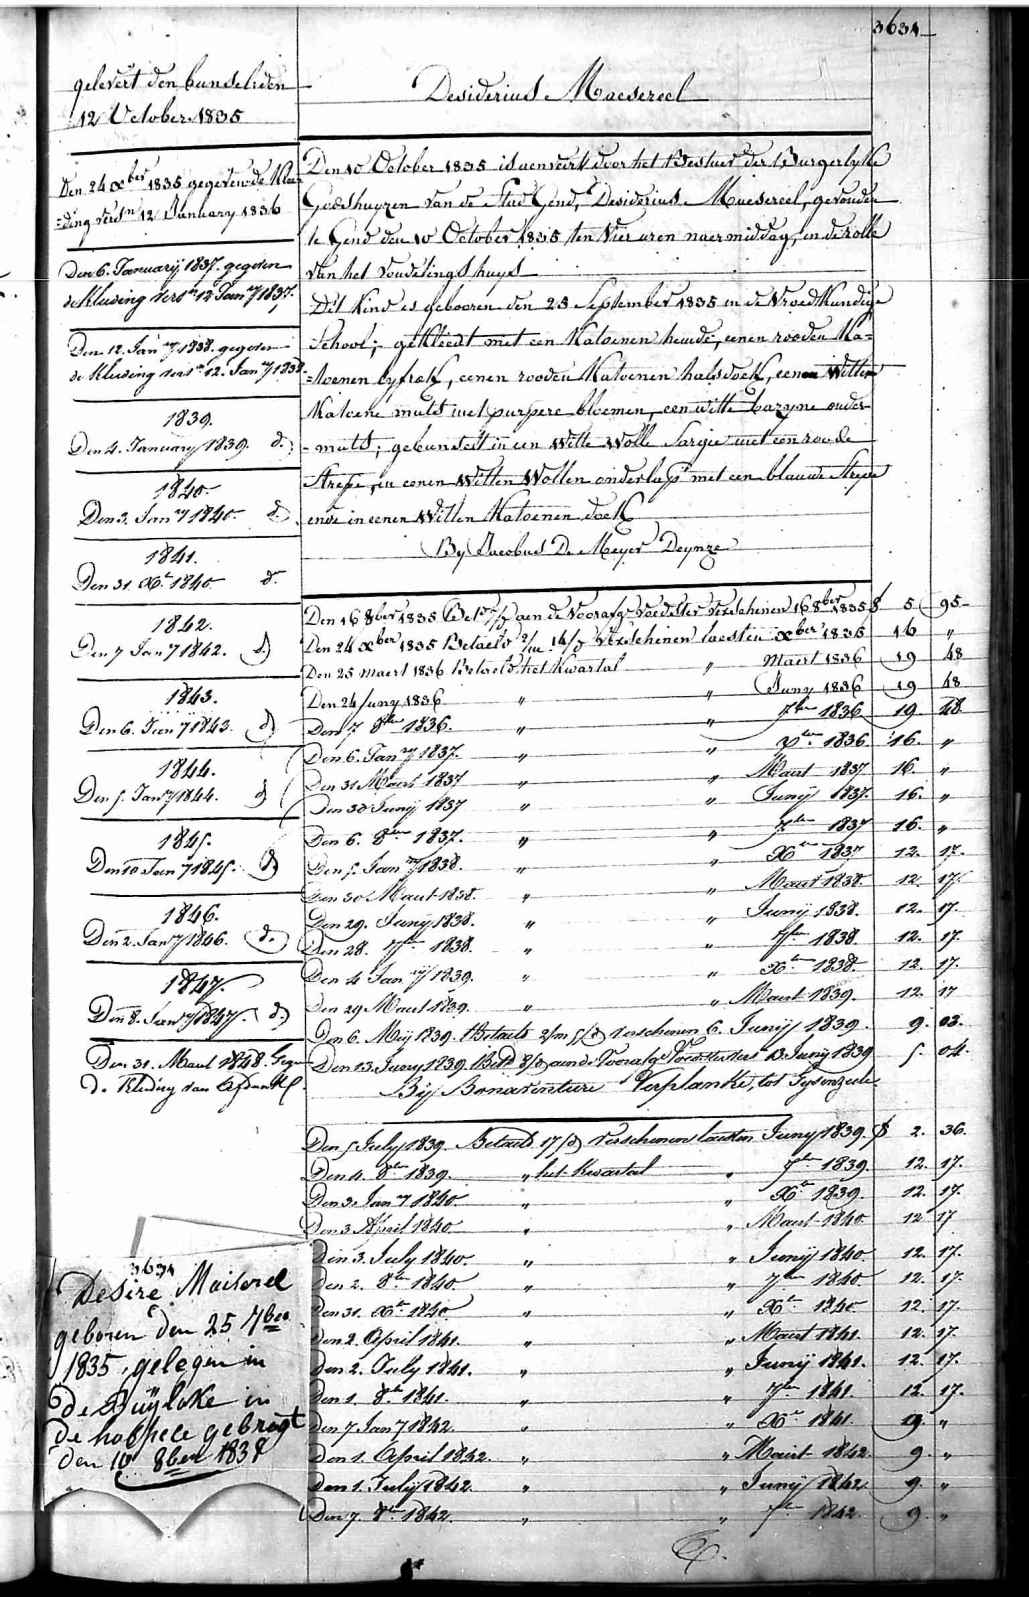 3634
gelevert den bunsel den
12 October 1835
Desiderius Maesereel
Den 24 xber 1835 gegeven de Klee-
-ding versn 12 January 1836
Den 6. January 1837. gegeven
de Kleeding versn 12 Jany 1837.
Den 12. Jany 1838. gegeven
de Kleeding versn 12. Jany 1838
1839.
Den 4. January 1839. do
1840.
Den 3. Jany 1840. do
1841.
Den 31 Xr 1840. do
1842.
Den 7 Jany 1842. do
1843.
Den 6. Jany 1843. do
1844.
Den 5. Jany 1844. do
1845.
Den 10 Jany 1845. do
1846.
Den 2. Jany 1846. do
1847.
Den 8. Jany 1847. do
Den 31. Maart 1848. Geg
de Kleeding van
Den 10 October 1835 is aenveirt door het Bestuer der Burgerlyke
Godshuyzen van de Stad Gend, Desiderius Maesereel, gevonden
te Gend den 10 October 1835 ten vier uren naermiddag, in de rolle
van het vondelingshuys
Dit Kind is gebooren den 25 September 1835 in de Vroedkundige
School; gekleedt met een Katoenen hemde, eenen rooden Ka-
-toenen lyfrok, eenen rooden Katoenen halsdoek, eenen Witten
Katoene muts met purpere bloemen, een witte bazyne onder-
-muts; gebunselt in een Witte Wolle Sargie met een roode
Strepe, en eenen Witten Wollen onderlap met een blauwe Strepe
ende in eenen Witten Katoenen doek
By Jacobus De Meyer Deynze
Den 16 8ber 1835 Bet aen de Voorafge voedster verschenen 16 8ber 1835 f 5 95
Den 24 xber 1835 Betaeld 2/m 14/d verschenen laesten xber 1835 16 "
Den 25 maert 1836 Betaeld het Kwartal " Maert 1836 19 48
Den 24 Juny 1836 " " Juny 1836 19 48
Den 7. 8ber 1836. " " 7ber 1836 19. 48
Den 6. Jany 1837. " " Xber 1836 16. "
Den 31 Maert 1837 " " Maert 1837 16. "
Den 30 Junij 1837 " " Junij 1837. 16. "
Den 6. 8ber 1837. " " 7ber 1837 16. "
Den 5. Jany 1838. " " Xber 1837 12. 17.
Den 30 Maart 1838. " " Maart 1838. 12. 17.
Den 29. Junij 1838. " " Junij 1838. 12. 17.
Den 28. 7ber 1838. " " 7ber 1838. 12. 17.
Den 4 Jany 1839. " " Xber 1838. 12. 17.
Den 29 Maart 1839. " " Maart 1839. 12. 17
Den 6. Meij 1839. Betaelt 2/m 5/d verschenen 6. Junij 1839. 9. 03.
Den 13. Juny 1839. Bett 8/d aen de Voorafge Voedster 13 Juny 1839 5. 04.
Bij Bonaventure Verplancke, tot Gijsenzeele
Den 5 July 1839. Betaelt 17/d verschenen laesten Juny 1839. f 2. 36.
Den 4. 8ber 1839. " het Kwartal " 7ber 1839. 12. 17.
Den 3. Jany 1840. " " Xr 1839. 12. 17.
Den 3 April 1840. " " Maart 1840 12 17
Den 3. July 1840. " " Junij 1840. 12. 17.
Den 2. 8ber 1840. " " 7ber 1840 12. 17.
Den 31. Xr 1840. " " Xr 1840 12. 17.
Den 2. April 1841. " " Maart 1841. 12. 17.
Den 2. July 1841. " " Junij 1841. 12. 17.
Den 1. 8r 1841. " " 7ber 1841 12. 17.
Den 7 Jany 1842. " " Xr 1841 9. "
Den 1. April 1842. " " Maart 1842. 9. "
Den 1. Julij 1842. " " Junij 1842 9. "
Den 7. 8r 1842. " " 7r 1842. 9. "
3634
Desire Maiserel
geboren den 25 7ber
1835, gelegen in
De Buyloke in
de hospece gebragt
den 10 8ber 1838